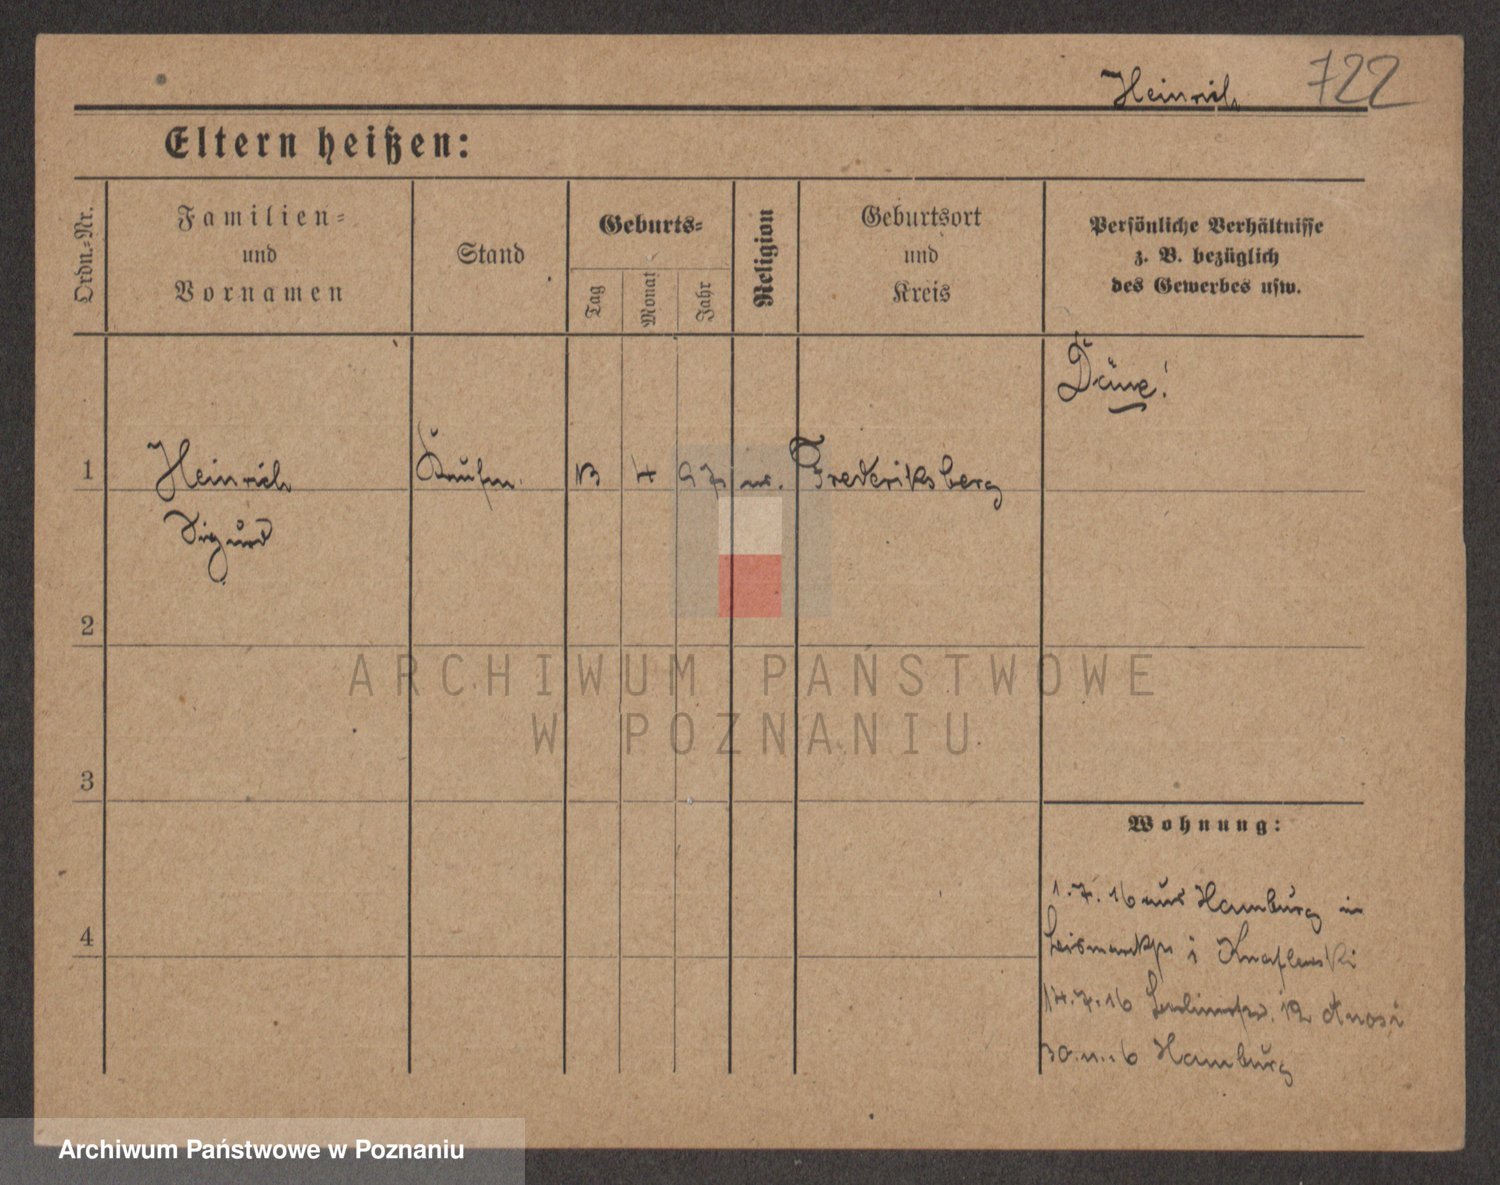 Heinrich 722
Eltern heißen:
Ordn.=Nr.
Familien=
und
Vornamen
Stand
Geburts=
Tag
Monat
Jahr
Religion
Geburtsort
und
Kreis
Persönliche Verhältnisse
z. B. bezüglich
des Gewerbes usw.
Däne!
1 Heinrich Kaufm. 13 4 97 Frederiksberg
Sigurd
2
3
4
ARCHIWUM PAŃSTWOWE
W POZNANIU
Wohnung:
1.7.16 aus Hamburg in
i Knaflewski
14.7.16 12
Hamburg
Archiwum Państwowe w Poznaniu